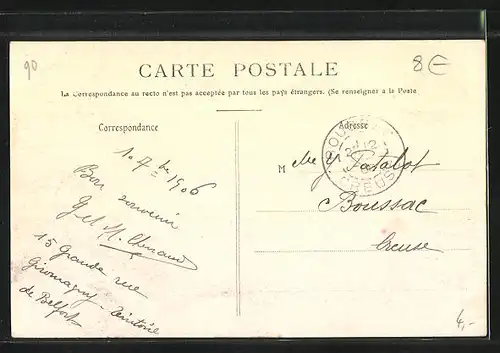 90
8€
CARTE POSTALE
La Correspondance au recto n'est pas acceptée par tous les pays étrangers. (Se renseigner à la Poste
Correspondance
Adresse
1906
Bon
souvenir
G et H.
15 Grande rue
Giromagny - Territoire
de Belfort
M
Boussac
Creuse
4,-